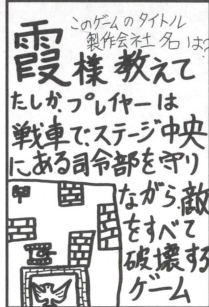 このゲームのタイトル
製作会社名は?
霞様教えて
たしか、プレイヤーは
戦車で、ステージ中央
にある司令部を守り
ながら、敵
をすべて
破壊する
ゲーム